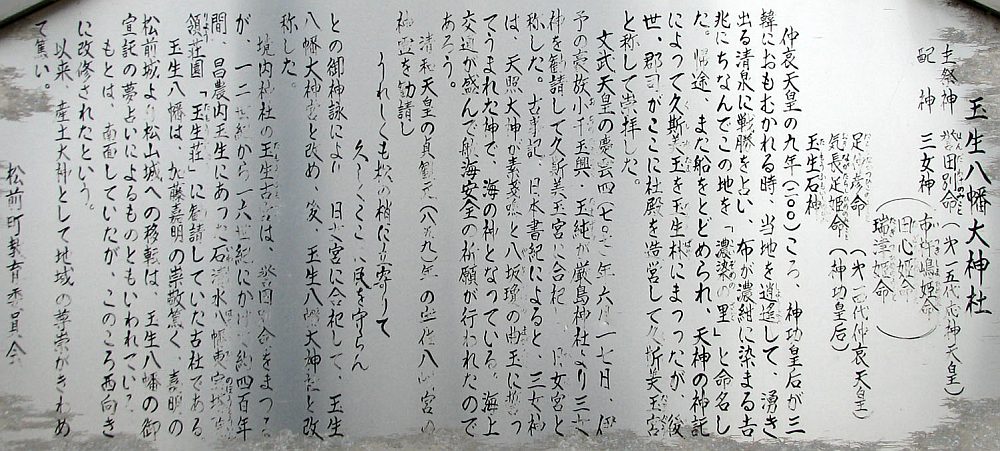 玉生八幡大神社
主祭神 誉田別命(第一五代応神天皇)
足仲彦命(第一四代仲哀天皇)
気長足姫命(神功皇后)
配神 三女神
市杵嶋姫命
田心姫命
瑞津姫命
玉生石神
仲哀天皇の九年(二〇〇)ころ、神功皇后が三
韓におもむかれる時、当地を逍遥して、湧き
出る清泉に戦勝をとい、布が濃紺に染まる吉
兆にちなんでこの地を「濃染の里」と命名し
た。帰途、また船をとどめられ、天神の神託
によって久斯美玉を玉生林にまつったが、後
世、郡司がここに社殿を造営して久斯美玉宮
と称して崇拝した。
文武天皇の慶雲四(七〇七)年六月一七日、伊
予の豪族小千玉興・玉純が厳島神社より三女
神を勧請して久斯美玉宮に合祀し、日女宮と
称した。古事記、日本書紀によると、三女神
は、天照大神が素戔嗚と八坂瓊の曲玉によっ
てうまれた神で、海の神となっている。海上
交通が盛んで航海安全の祈願が行われたので
あろう。
清和天皇の貞観元(八五九)年の宇佐八幡宮の
神霊を勧請し
うれしくも松の梢に立寄りて
久しくここに民を守らん
との御神詠により、日女宮に合祀して、玉生
八幡大神宮と改め、後、玉生八幡大神社と改
称した。
境内神社の玉生古社は、誉田別命をまつる
が、一二世紀から一六世紀にかけ約四百年
間、昌農内玉生にあった石清水八幡宮
領荘園「玉生荘」に勧請していた古社である
玉生八幡は、加藤嘉明の崇敬篤く、嘉明の
松前城より松山城への移転は、玉生八幡の御
宣託の夢よいによるものともいわれている。
もとは、南面していたが、このころ西向き
に改修されたという。
以来、産土大神として地域の尊崇がきわめ
て篤い。
松前町教育委員会